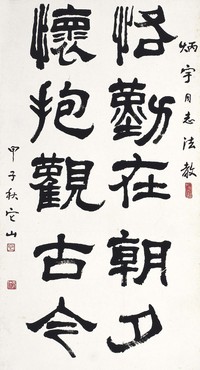 炳宇同志法教
恪勤在朝夕
懷抱觀古今
甲子秋它山